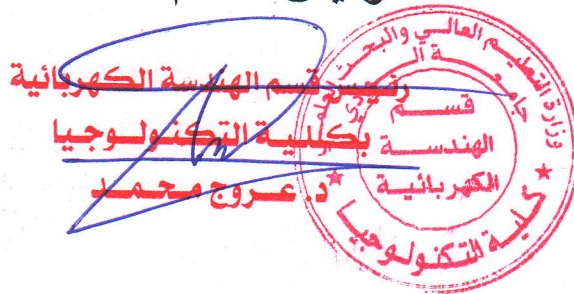 رئيس قسم الهندسة الكهربائية
بكلية التكنولوجيا
د. عروج محمد
وزارة التعليم العالي والبحث
جامعة
قسم
الهندسة
الكهربائية
كلية التكنولوجيا